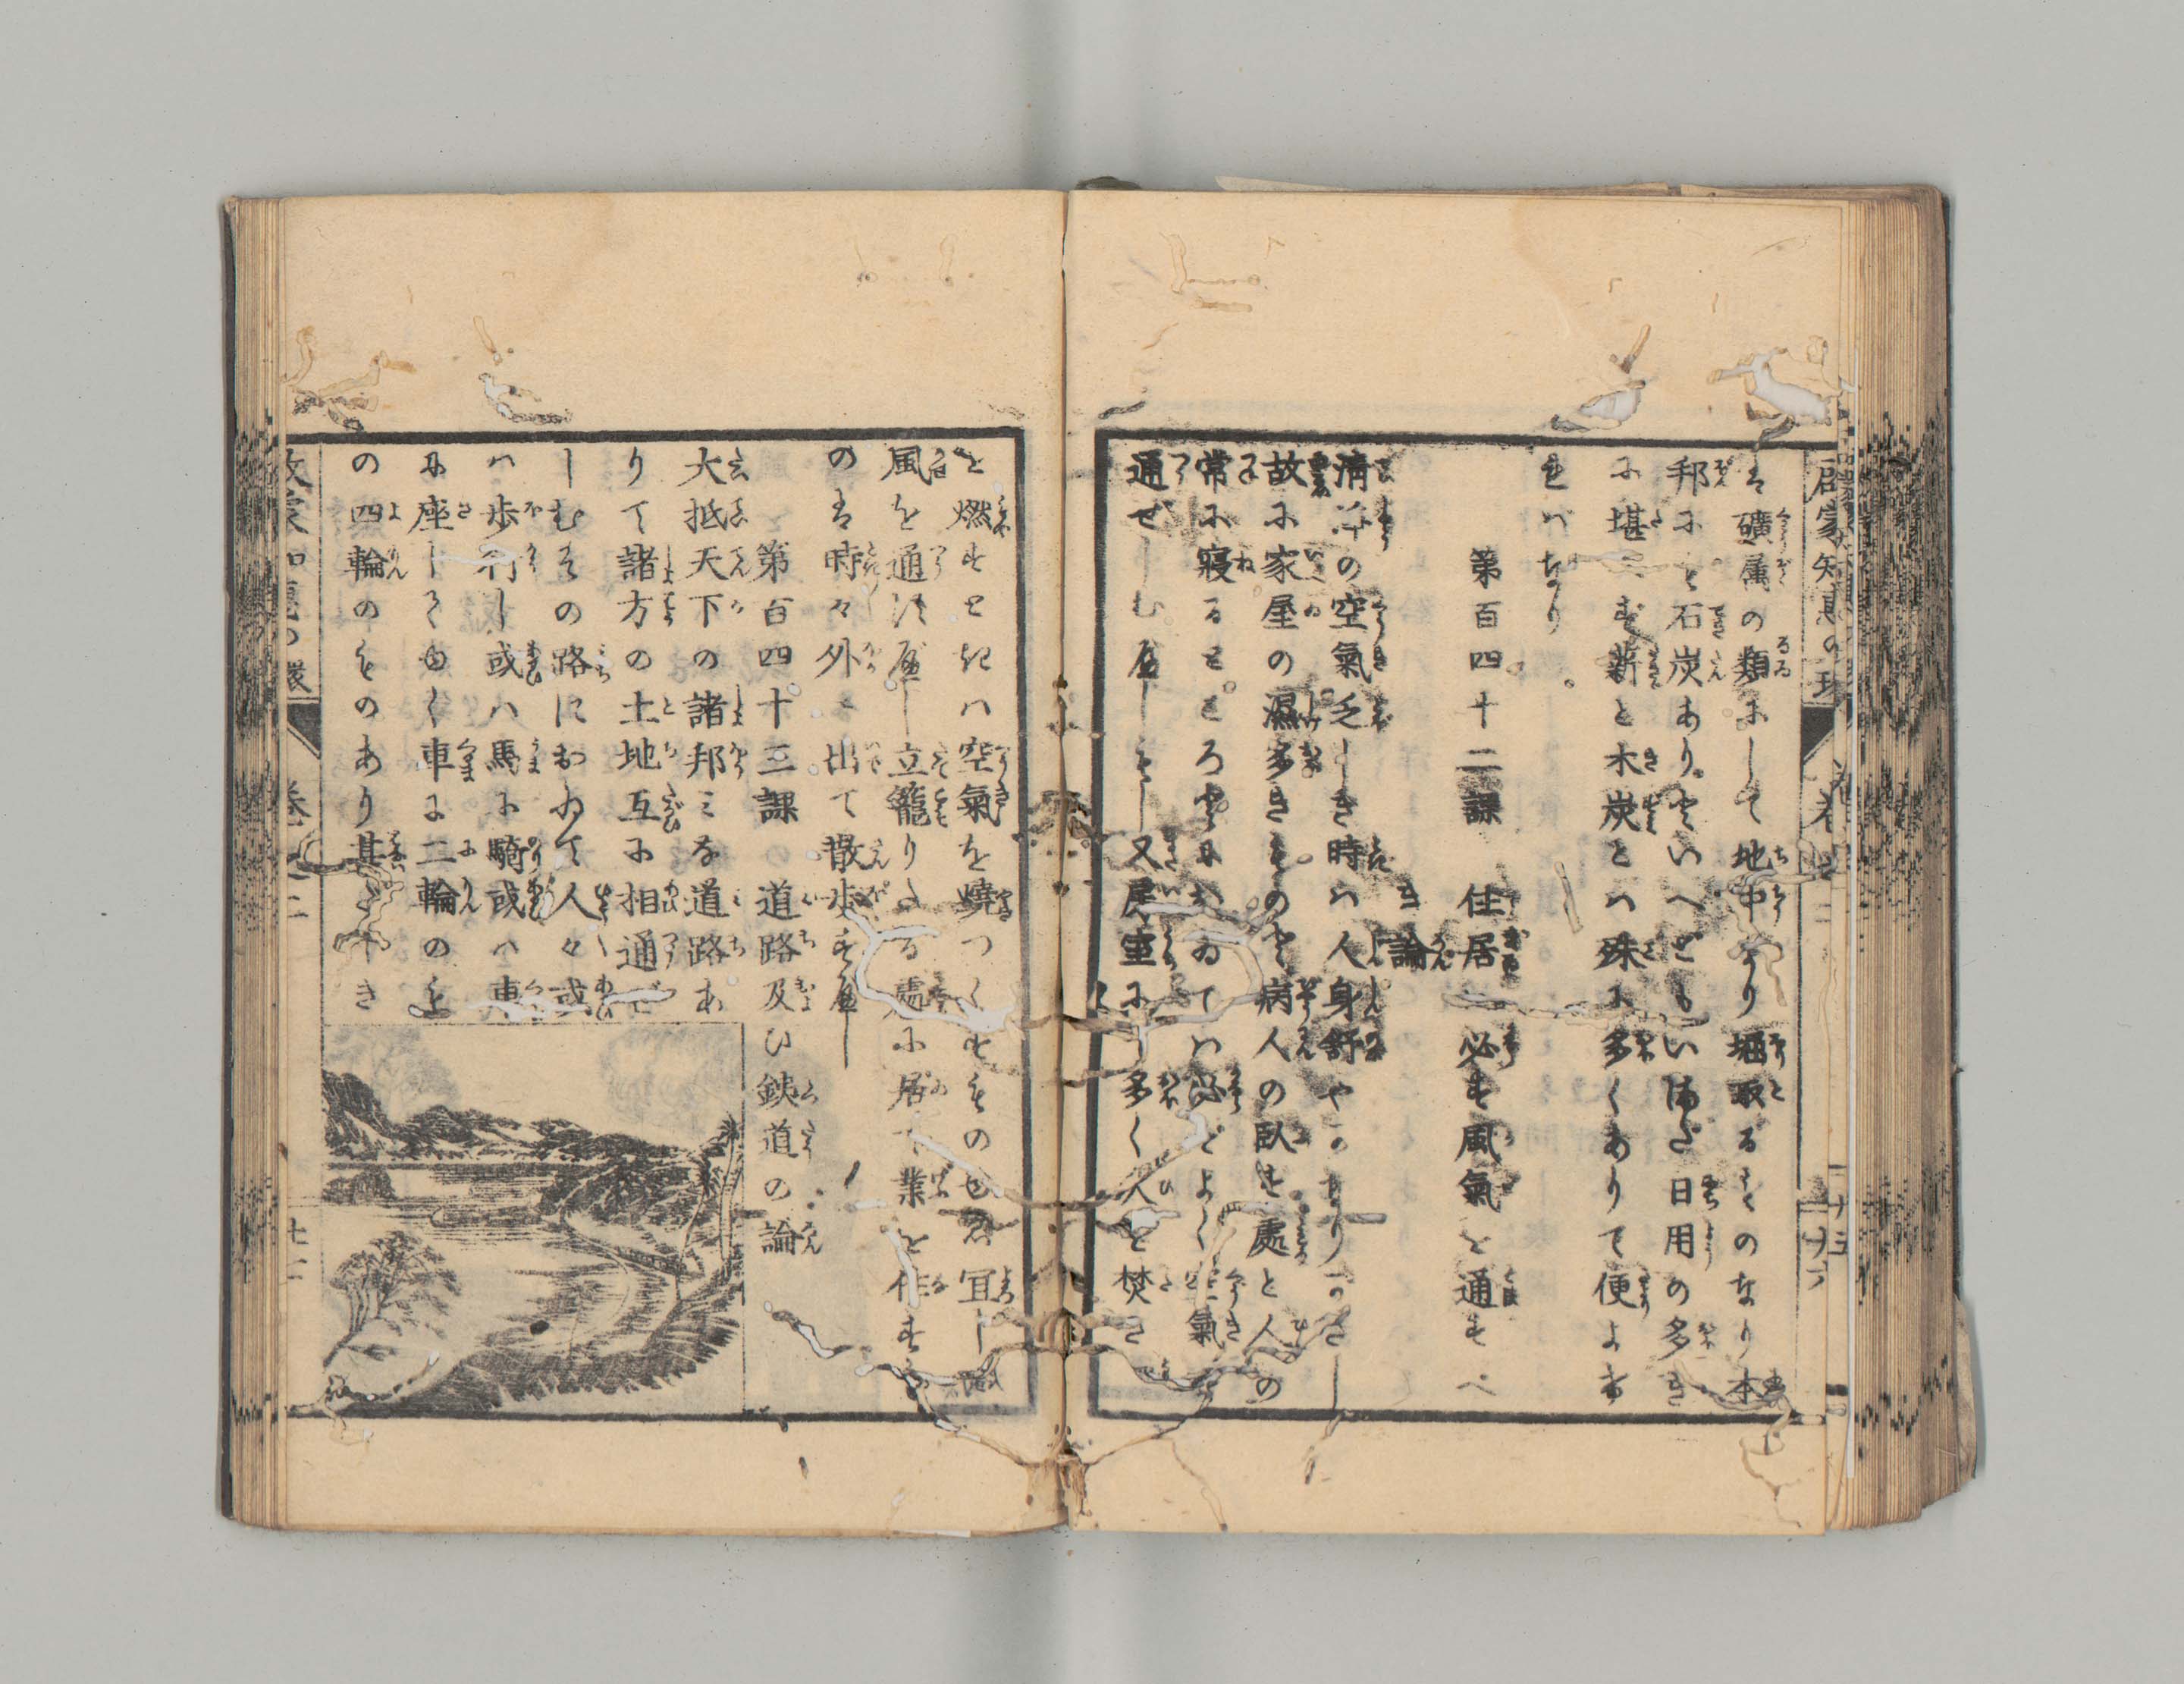 啓蒙知恵の環
は礦属の類にして地中より堀取るものなり本
邦にも石炭ありといへどもいまだ日用の多き
に堪ず薪と木炭とハ殊に多くありて便よけ
ればなり
第百四十二課 住居必ず風氣を通すべ
き論
清浄の空氣乏しき時ハ人身舒やかなりがたし
故に家屋の濕多きもの と病人の臥す處と人の
常に寝るところ にわゐてハ必どよく空氣
通せしむ屋しもし又居室に 多く人と焚き
と燃すときハ空氣を燒つくすものゆゑ宜し
風を通ず屋し立籠りたる處に居て業を作する
のは時々外に出て散歩す屋し
第百四十三課 道路及ひ鉄道の論
大抵天下の諸邦みな道路あ
りて諸方の土地互に相通ぜ
しむその路におゐて人々或
ハ歩行し或ハ馬に騎或ハ車
に座してゆく車に二輪の
の四輪のものあり甚 き
啓蒙知恵の環
卷之二